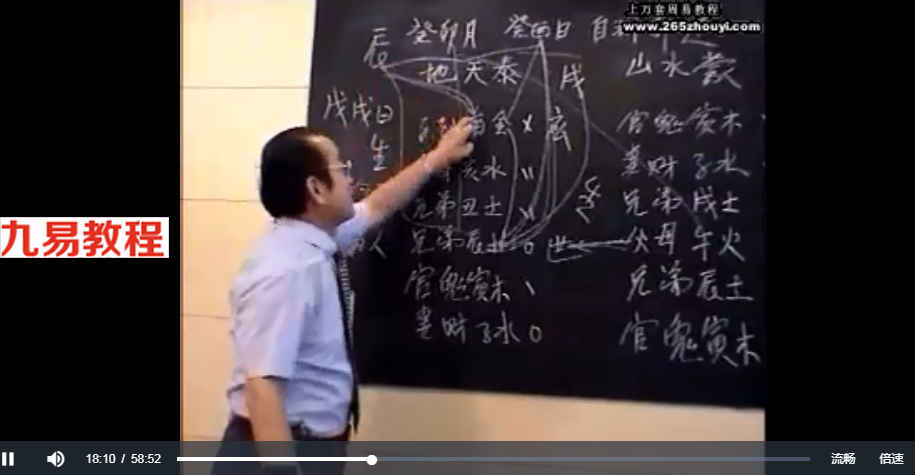 上万套周易教程
www.265zhouyi.com
辰 癸卯月 癸酉日 自
地天泰 戌 山水蒙
戊戌日
生
酉金 × 應 官鬼寅木 、
亥水 〃 妻財子水
兄弟丑土 〃 兄弟戌土
兄弟辰土 O 世 父母午火
官鬼寅木 、 兄弟辰土
妻財子水 O 官鬼寅木
九易教程
18:10 / 58:52
流畅 倍速